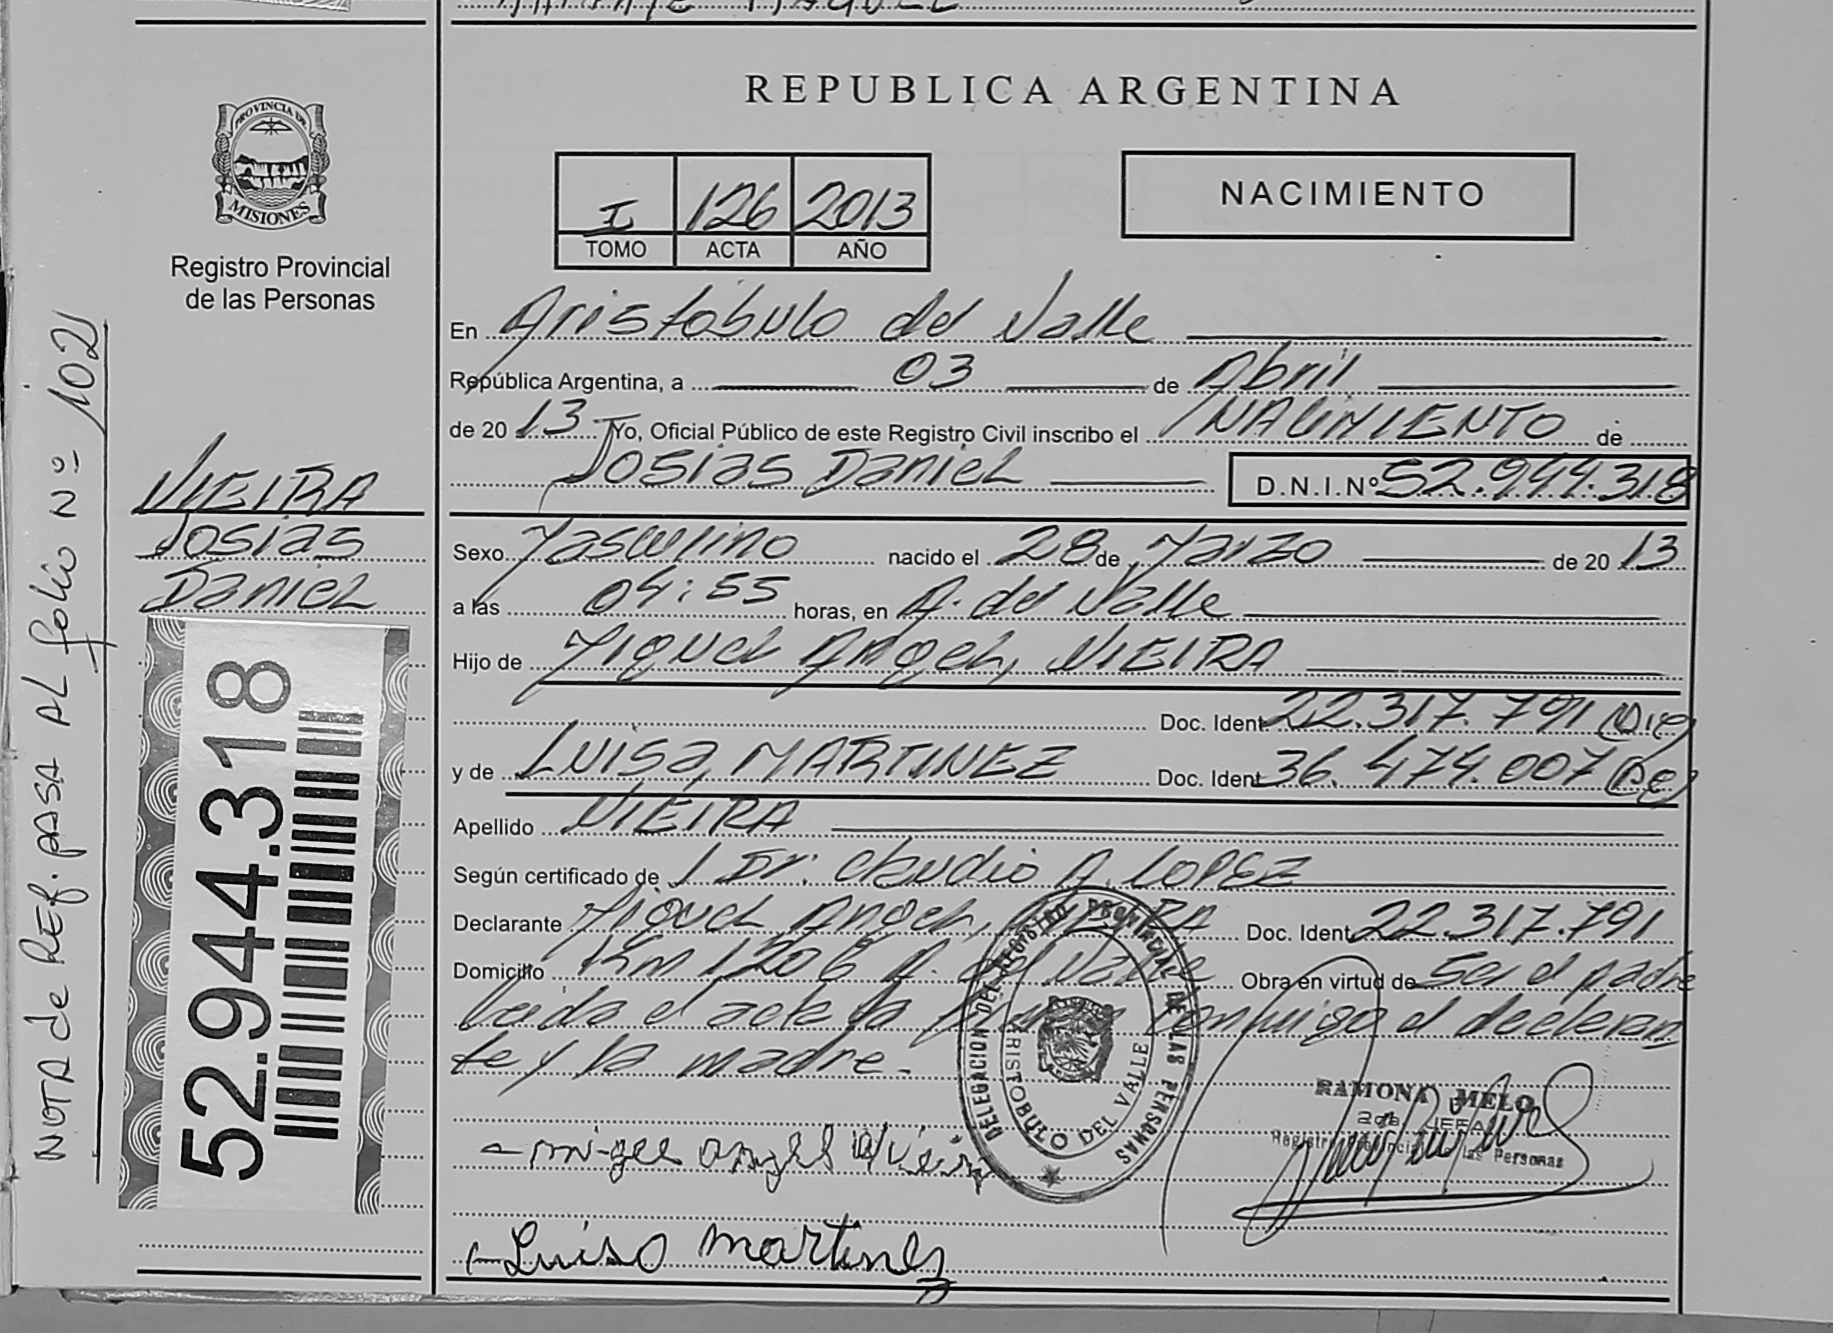 REPUBLICA ARGENTINA
PROVINCIA DE
MISIONES
Registro Provincial
de las Personas
I 126 2013
TOMO ACTA AÑO
NACIMIENTO
NOTA de REf. PASA AL folio Nº 102
VIEIRA
Josias
Daniel
52.944.318
En Aristóbulo del Valle
República Argentina, a 03 de Abril
de 20 13 Yo, Oficial Público de este Registro Civil inscribo el NACIMIENTO de
Josias Daniel D.N.I.Nº 52.944.318
Sexo Masculino nacido el 28 de Marzo de 20 13
a las 04:55 horas, en A. del Valle
Hijo de Miguel Angel, VIEIRA
Doc. Ident. 22.317.791
y de Luisa, MARTINEZ Doc. Ident. 36.474.007
Apellido VIEIRA
Según certificado de Dr. Claudio A. LOPEZ
Declarante Miguel Angel, Doc. Ident. 22.317.791
Domicilio Km 1206 A. del Valle Obra en virtud de Ser el padre
Leida el acta la conmigo el declaran
te y la madre.
DELEGACION DEL REGISTRO PROVINCIAL DE LAS PERSONAS
ARISTOBULO DEL VALLE
RAMONA MELO
2da JEFA
Registro Provincial de las Personas
angel
Luisa martinez